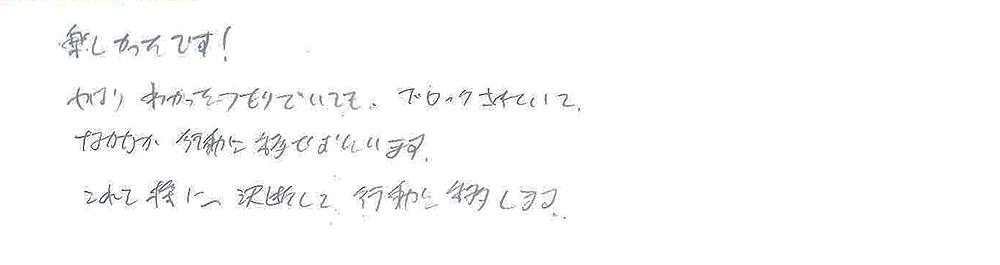 楽しかったです！
やはり わかったつもりでいても、ブロックされていて、
なかなか 行動に移せないでいます。
これを機に、決断して 行動に移します。